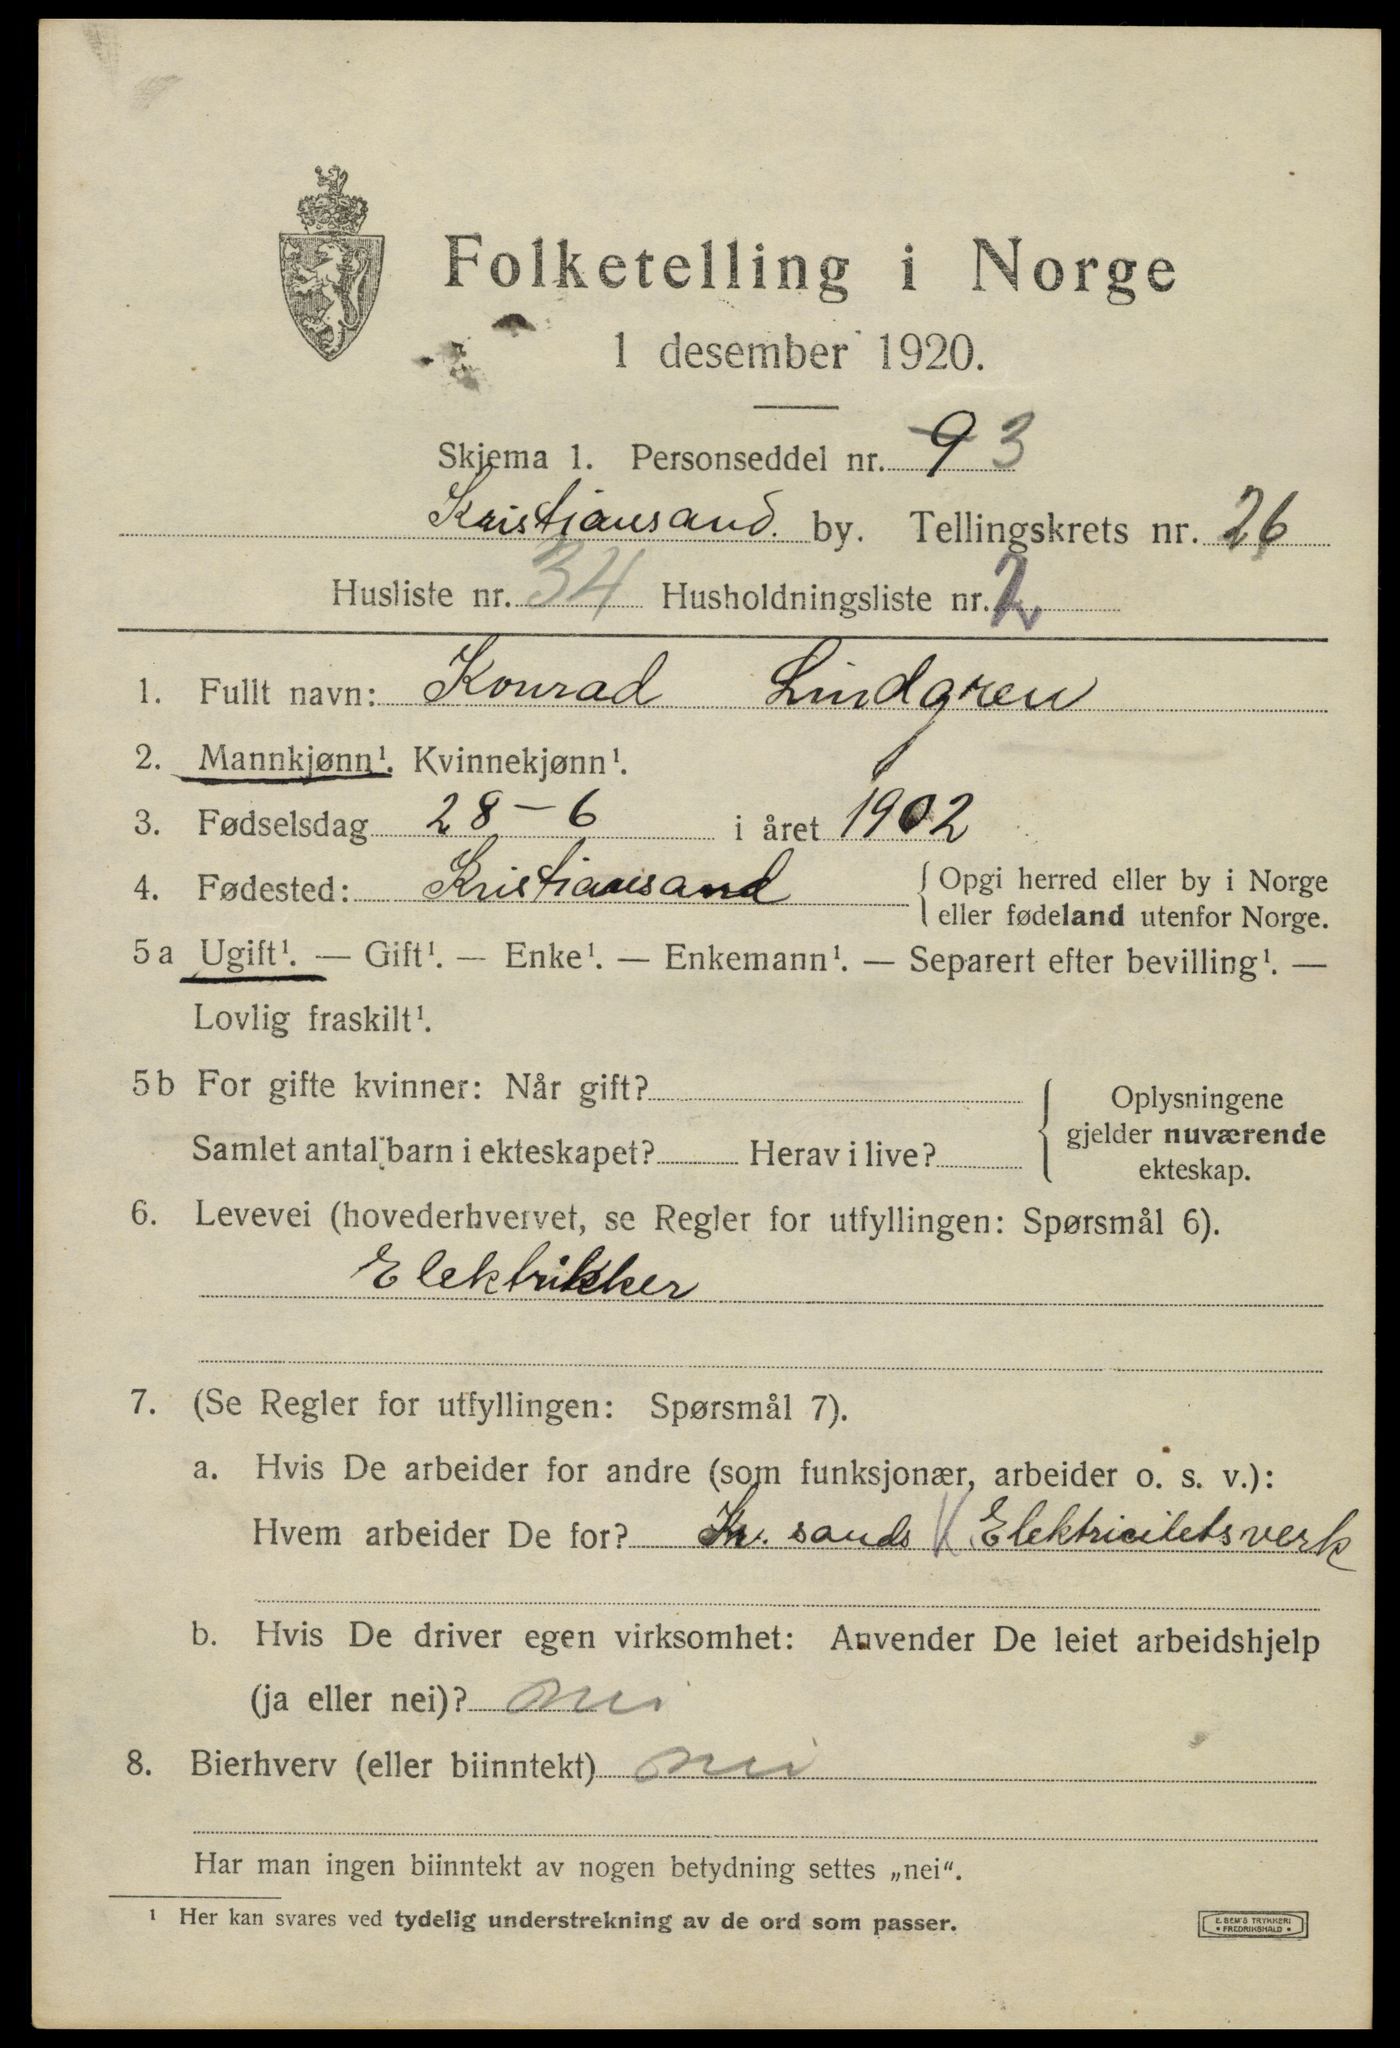 Folketelling i Norge
1 desember 1920.
Skjema 1. Personseddel nr. 9 3
Kristiansand. by. Tellingskrets nr. 26
Husliste nr. 34 Husholdningsliste nr. 2
1. Fullt navn: Konrad Lindgren
2. Mannkjønn¹. Kvinnekjønn¹.
3. Fødselsdag 28-6 i året 1902
4. Fødested: Kristiansand { Opgi herred eller by i Norge
eller fødeland utenfor Norge.
5 a Ugift¹. — Gift¹. — Enke¹. — Enkemann¹. — Separert efter bevilling¹. —
Lovlig fraskilt¹.
5 b For gifte kvinner: Når gift? { Oplysningene
gjelder nuværende
Samlet antal barn i ekteskapet? Herav i live?
ekteskap.
6. Levevei (hovederhvervet, se Regler for utfyllingen: Spørsmål 6).
Elektrikker
7. (Se Regler for utfyllingen: Spørsmål 7).
a. Hvis De arbeider for andre (som funksjonær, arbeider o. s. v.):
Hvem arbeider De for? Kr. sands K Elektricitetsverk
b. Hvis De driver egen virksomhet: Anvender De leiet arbeidshjelp
(ja eller nei)? nei
8. Bierhverv (eller biinntekt) nei
Har man ingen biinntekt av nogen betydning settes „nei“.
¹ Her kan svares ved tydelig understrekning av de ord som passer.
E. SEM'S TRYKKERI
• FREDRIKSHALD •